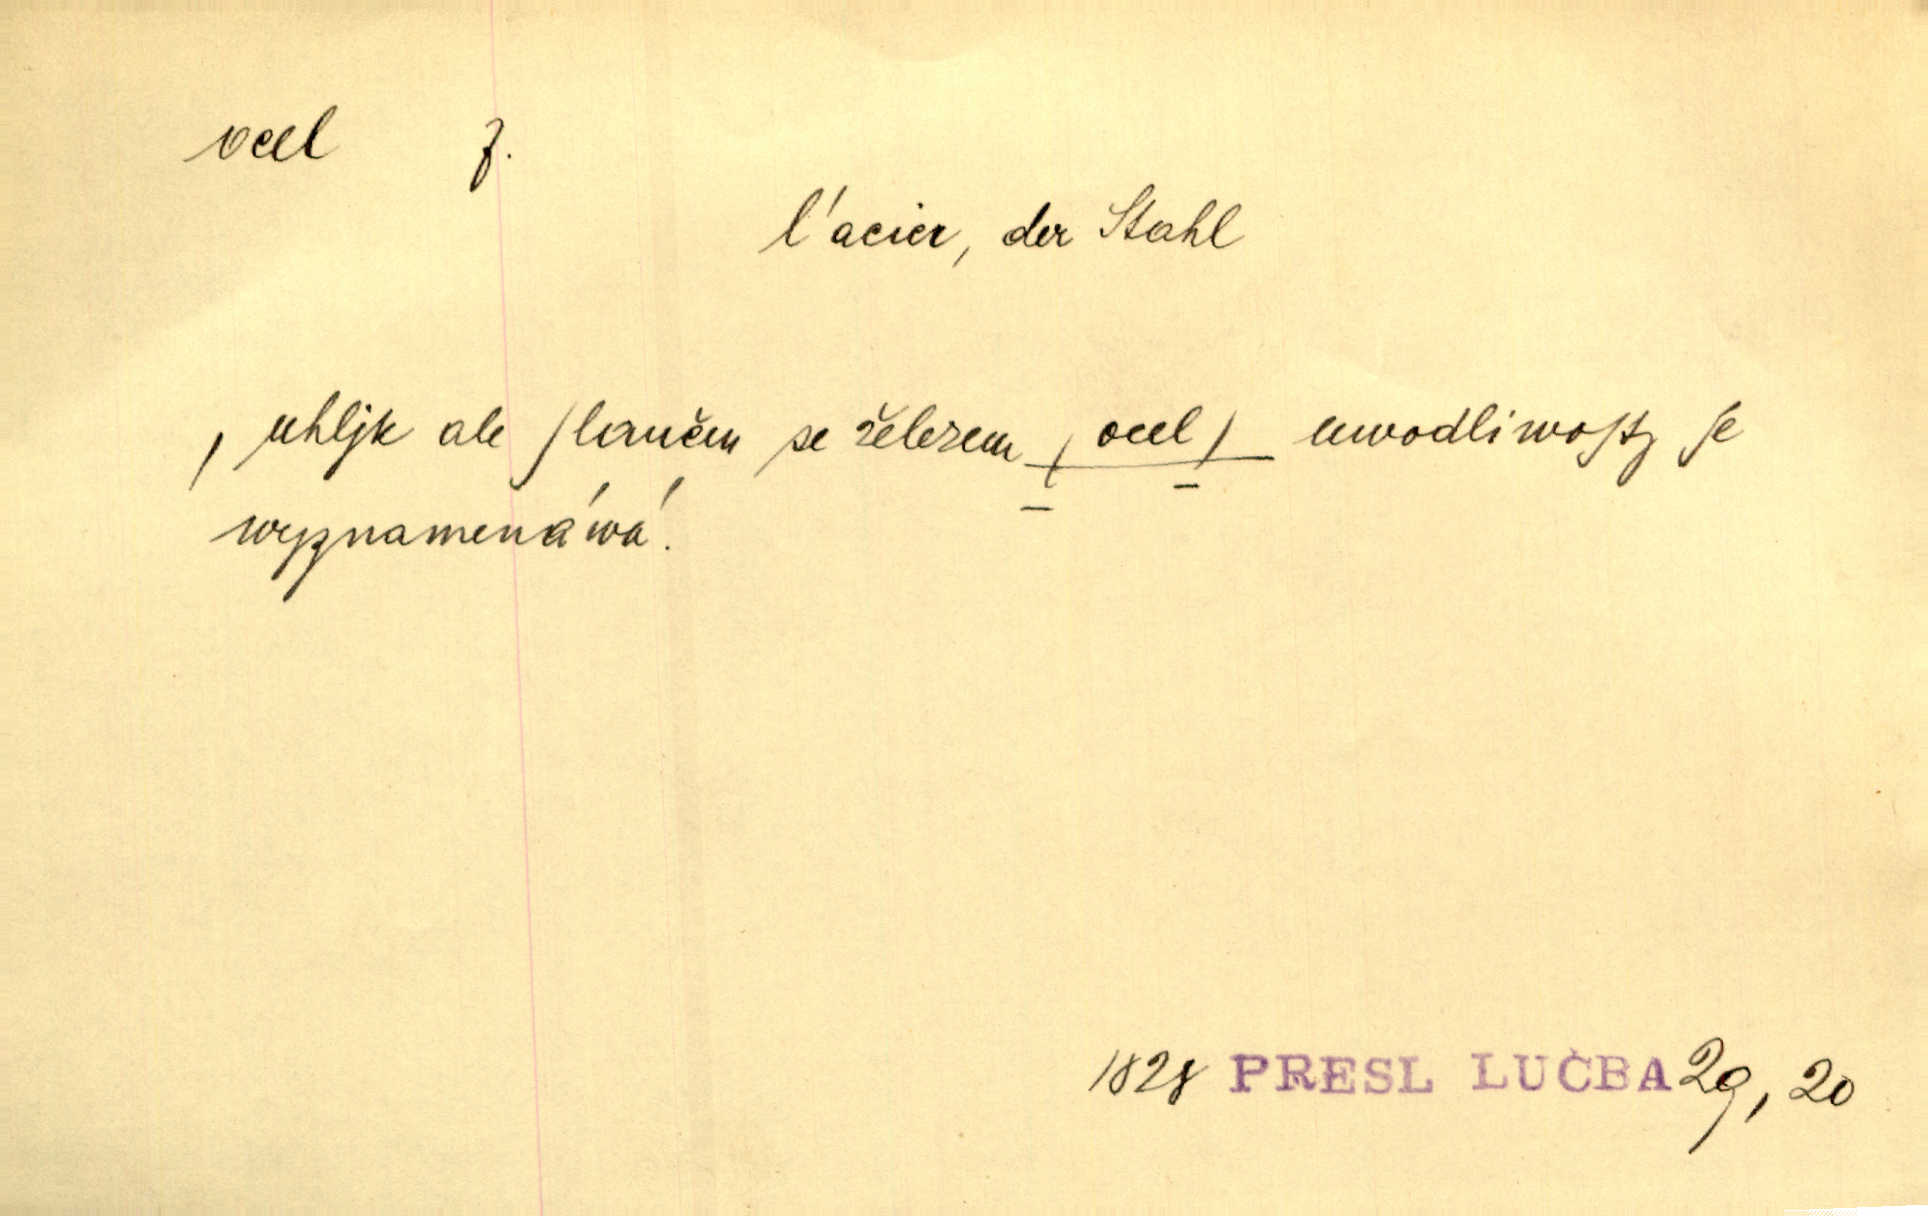 ocel f.
l'acier, der Stahl
, uhljk ale ſlaučen se železem (ocel) uwodliwoſtj ſe
wyznamenáwá.
1828 PRESL LUČBA 29, 20